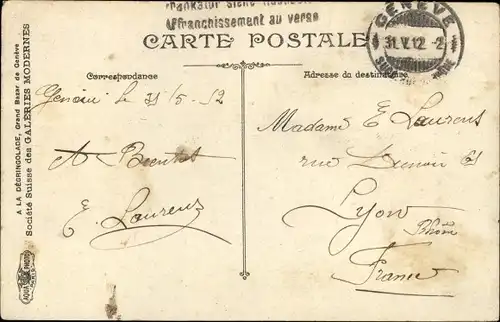 Frankatur siehe Rückseite
Affranchissement au verso
GENÈVE
31.V.12.-2
CARTE POSTALE
Correspondance
Adresse du destinataire
A LA DÉGRINGOLADE, Grand Bazar de Genève
Société Suisse des GALERIES MODERNES
AQUA PHOTO
Genève le 31/5-12
A Bientot
E. Laurens
Madame E Laurens
rue 61
Lyon
Rhône
France